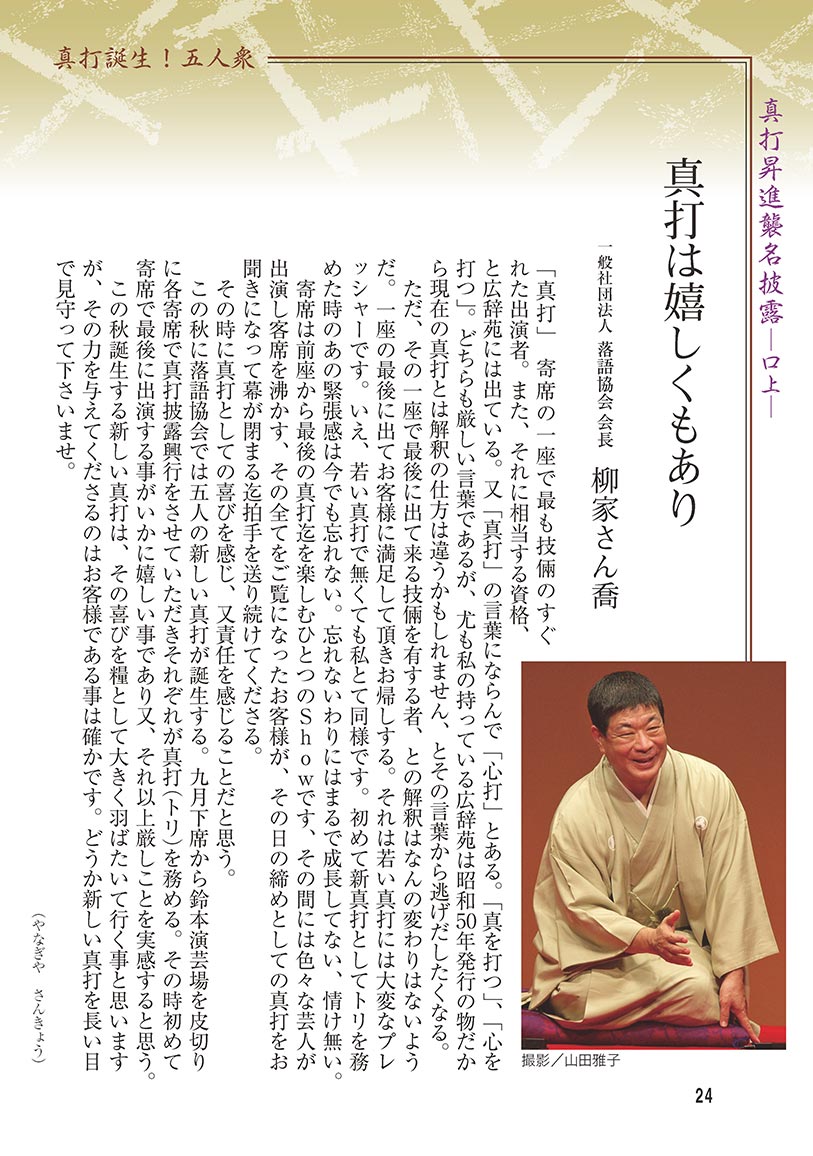 真打誕生！五人衆
真打昇進襲名披露―口上―
真打は嬉しくもあり
一般社団法人 落語協会会長 柳家さん喬
「真打」 寄席の一座で最も技倆のすぐ
れた出演者。また、それに相当する資格、
と広辞苑には出ている。又「真打」の言葉にならんで「心打」とある。「真を打つ」、「心を
打つ」。どちらも厳しい言葉であるが、尤も私の持っている広辞苑は昭和50年発行の物だか
ら現在の真打とは解釈の仕方は違うかもしれません、とその言葉から逃げだしたくなる。
ただ、その一座で最後に出て来る技倆を有する者、との解釈はなんの変わりはないよう
だ。一座の最後に出てお客様に満足して頂きお帰しする。それは若い真打には大変なプレ
ッシャーです。いえ、若い真打で無くても私とて同様です。初めて新真打としてトリを務
めた時のあの緊張感は今でも忘れない。忘れないわりにはまるで成長してない、情け無い。
寄席は前座から最後の真打迄を楽しむひとつのShowです、その間には色々な芸人が
出演し客席を沸かす、その全てをご覧になったお客様が、その日の締めとしての真打をお
聞きになって幕が閉まる迄拍手を送り続けてくださる。
その時に真打としての喜びを感じ、又責任を感じることだと思う。
この秋に落語協会では五人の新しい真打が誕生する。九月下席から鈴本演芸場を皮切り
に各寄席で真打披露興行をさせていただきそれぞれが真打（トリ）を務める。その時初めて
寄席で最後に出演する事がいかに嬉しい事であり又、それ以上厳しことを実感すると思う。
この秋誕生する新しい真打は、その喜びを糧として大きく羽ばたいて行く事と思います
が、その力を与えてくださるのはお客様である事は確かです。どうか新しい真打を長い目
で見守って下さいませ。
（やなぎや さんきょう）
撮影／山田雅子
24